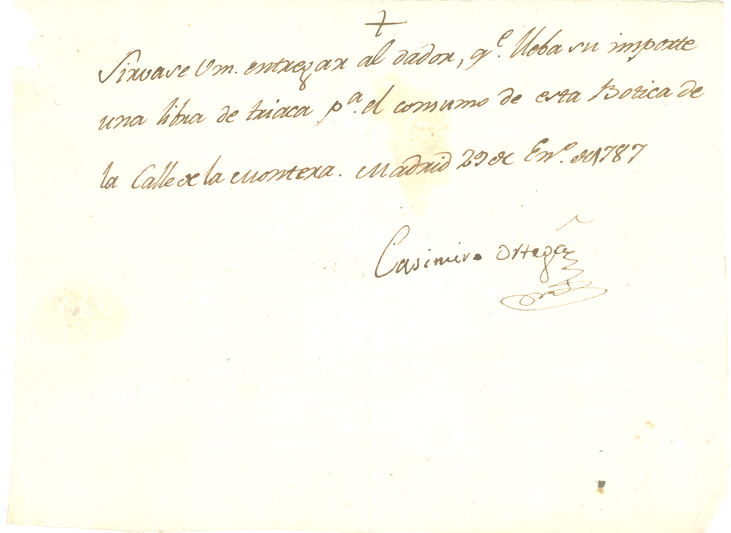 +
Sirvase Vm. entregar al dador, qe. lleba su importe
una libra de triaca pa. el consumo de esta Botica de
la Calle de la Montera. Madrid 29 de Eno. de 1787
Casimiro Ortega